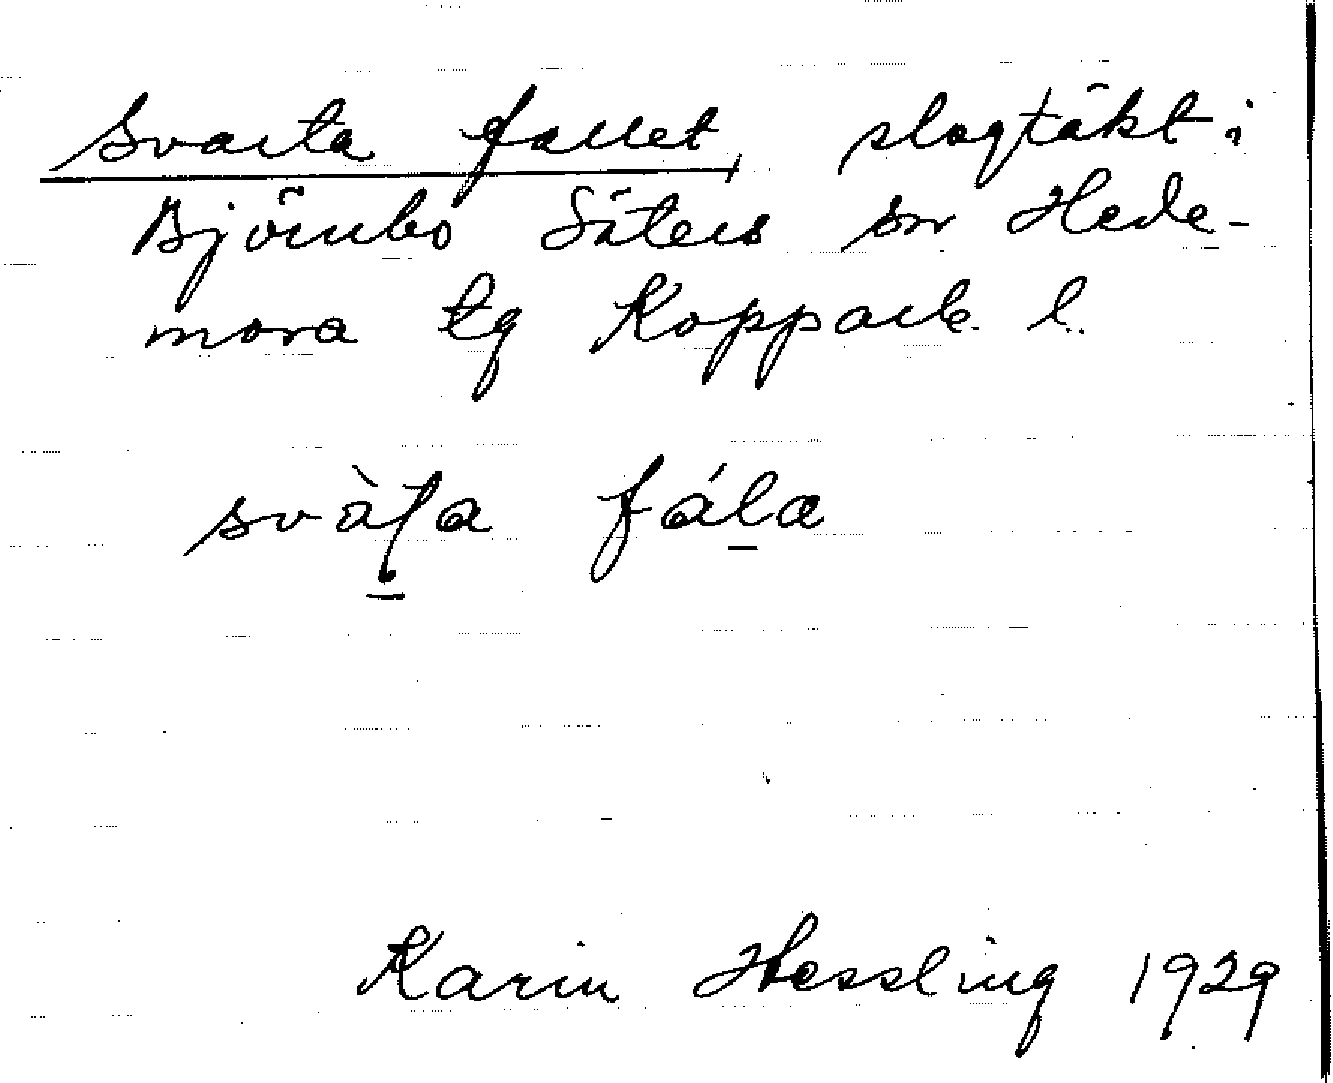 Svarta fallet, slogtäkt i
Björnbo Säters sn Hede-
mora tg Kopparb. l.
svàʈa fála
Karin Hessling 1929